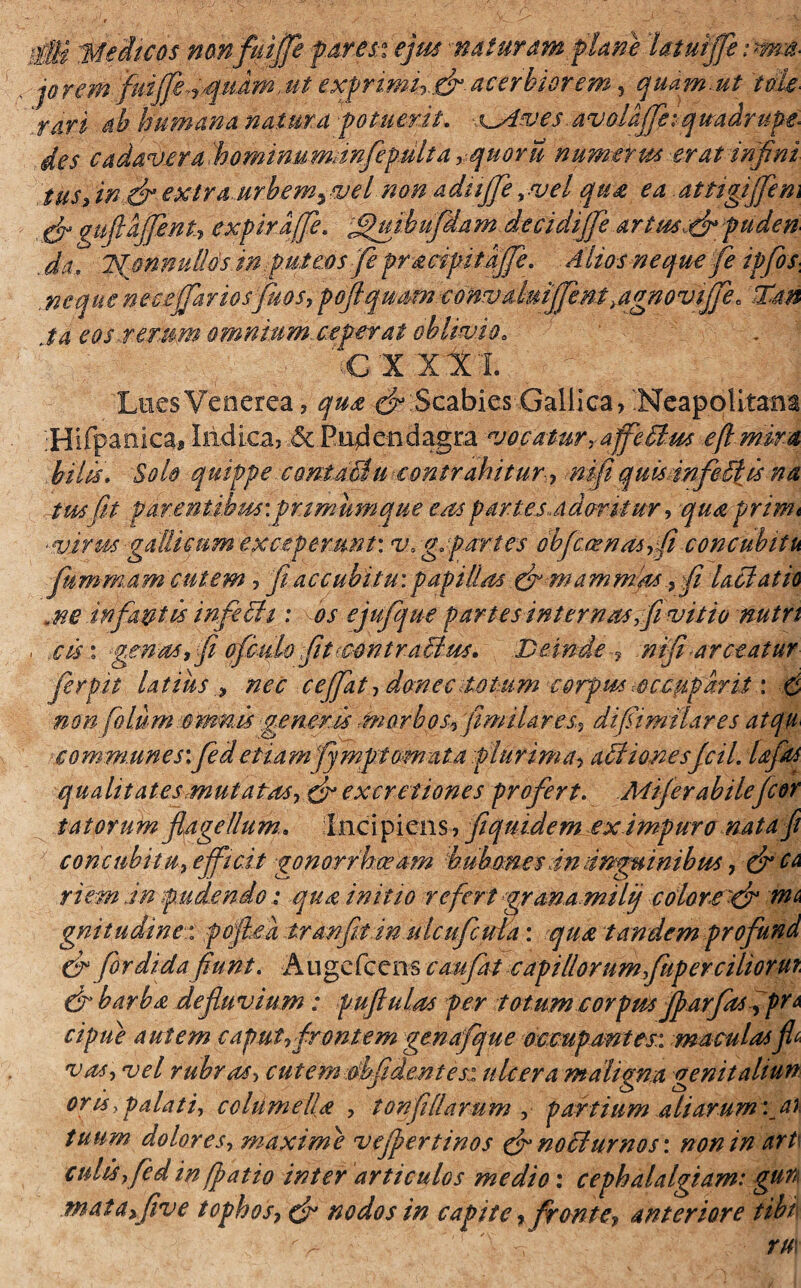 Medicos non fuiſſe pares: ejus naturam plane latuiſſe: ma-
jorem fuiſſe, quàm ut exprimi, & acerbiorem, quam ut tole-
rari ab humana natura potuerit. Aves avolâſſe: quadrupe-
des cadavera hominum inſepulta, quorū numerus erat infini
tus, in & extra urbem, vel non adiiſſe, vel quæ ea attigiſſent
& guſtâſſent, expirâſſe. Quibuſdam decidiſſe artus & puden-
da. Nonnullos in puteos ſe præcipitâſſe. Alios neque ſe ipſos,
neque neceſſarios ſuos, poſtquam convaluiſſent, agnoviſſe. Tan
ta eos rerum omnium ceperat oblivio.
CXXXI.
Lues Venerea, quæ & Scabies Gallica, Neapolitana
Hiſpanica, Indica, & Pudendagra vocatur, affectus eſt mira
bilis. Solo quippe contactu contrahitur, niſi quis infectis na
tus ſit parentibus: primùmque eas partes adoritur, quæ primæ
virus gallicum exceperunt: v. g. partes obſcœnas, ſi concubitu
ſummam cutem, ſi accubitu: papillas & mammas, ſi lactatio
ne infantis infecti: os ejuſque partes internas, ſi vitio nutri
cis: genas, ſi oſculo ſit contractus. Deinde, niſi arceatur
ſerpit latiùs, nec ceſſat, donec totum corpus occupârit: &
non ſolùm omnis generis morbos, ſimilares, diſsimilares atque
communes: ſed etiam ſymptomata plurima, actiones ſcil. læſas
qualitates mutatas, & excretiones profert. Miſerabile ſcor
tatorum flagellum. Incipiens, ſiquidem ex impuro nata ſi
concubitu, efficit gonorrhœam bubones in inguinibus, & ca
riem in pudendo: quæ initio refert grana milij colore & ma
gnitudine: poſteà tranſit in ulcuſcula: quæ tandem profund
& ſordida fiunt. Augeſcens cauſat capillorum, ſuperciliorum
& barbæ defluvium: puſtulas per totum corpus ſparſas, præ
cipuè autem caput, frontem genaſque occupantes: maculas fla
vas, vel rubras, cutem obſidentes: ulcera maligna genitalium
oris, palati, columellæ, tonſillarum, partium aliarum: ar
tuum dolores, maximè veſpertinos & nocturnos: non in arti
culis, ſed in ſpatio inter articulos medio: cephalalgiam: gum
mata, ſive tophos, & nodos in capite, fronte, anteriore tibia
ru